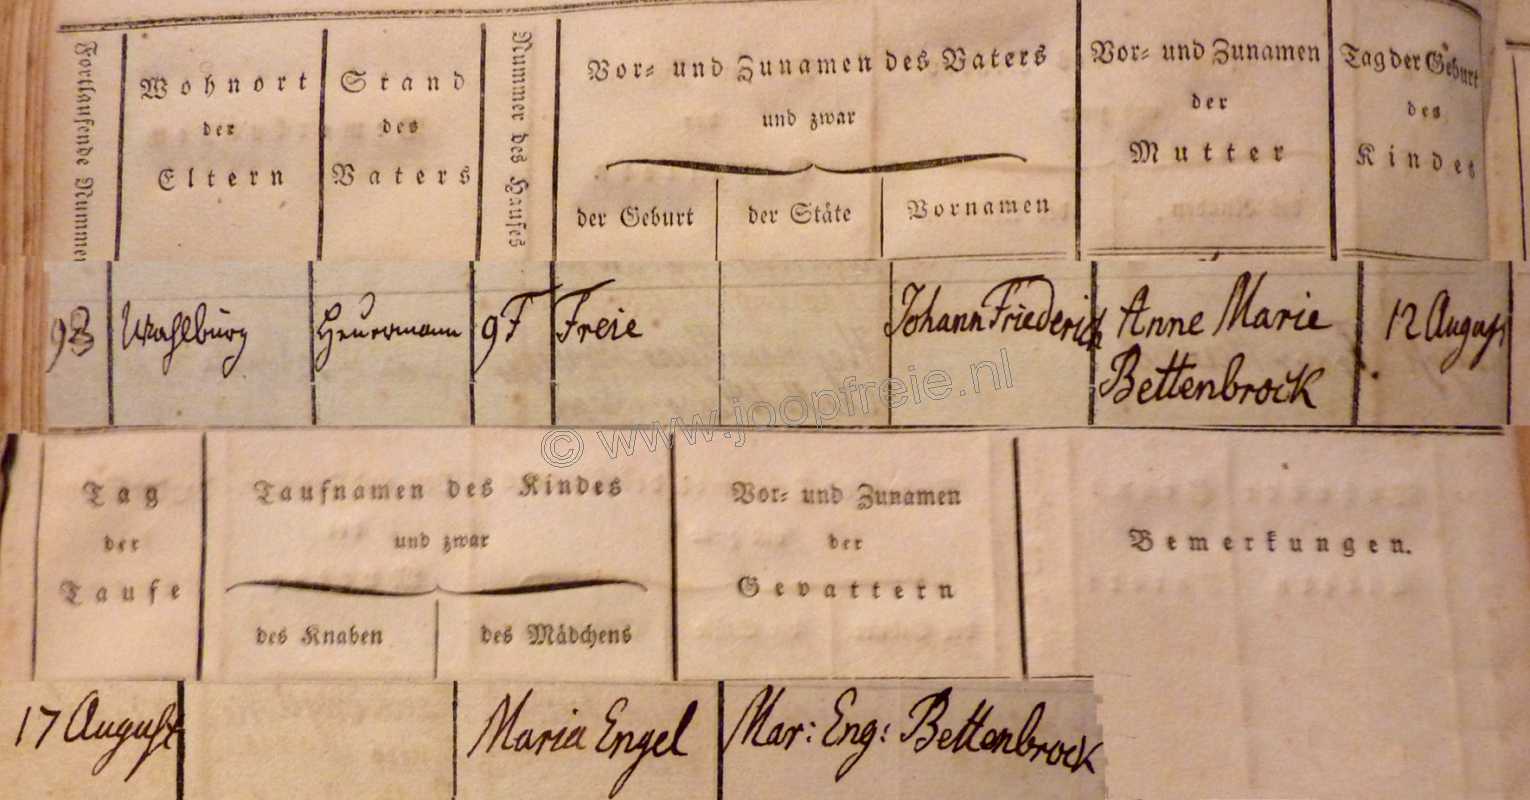 Fortlaufende Nummer
Wohnort
der
Eltern
Stand
des
Vaters
Nummer des Hauses
Vor- und Zunamen des Vaters
und zwar
der Geburt
der Stäte
Vornamen
Vor- und Zunamen
der
Mutter
Tag der Geburt
des
Kindes
93 Wahlburg Heuermann 9F Freie Johann Friederich Anne Marie 12 August
Bettenbrock
© www.joopfreie.nl
Tag
der
Taufe
Taufnamen des Kindes
und zwar
des Knaben
des Mädchens
Vor- und Zunamen
der
Gevattern
Bemerkungen.
17 August Maria Engel Mar: Eng: Bettenbrock